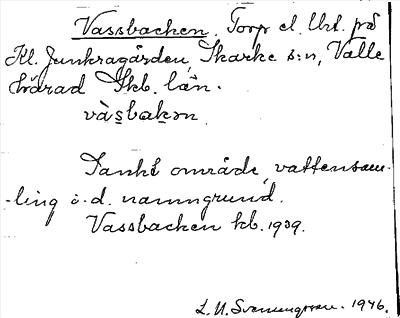 Vassbacken. Torp el. Urt. på
Kl. Junkragården, Skarke s:n, Valle
härad Skb. län.
vàs̱bak̠ən.
Sankt område, vattensam-
-ling o.d. namngrund.
Vassbacken kb. 1909.
L. N. Svenungsson. 1946.